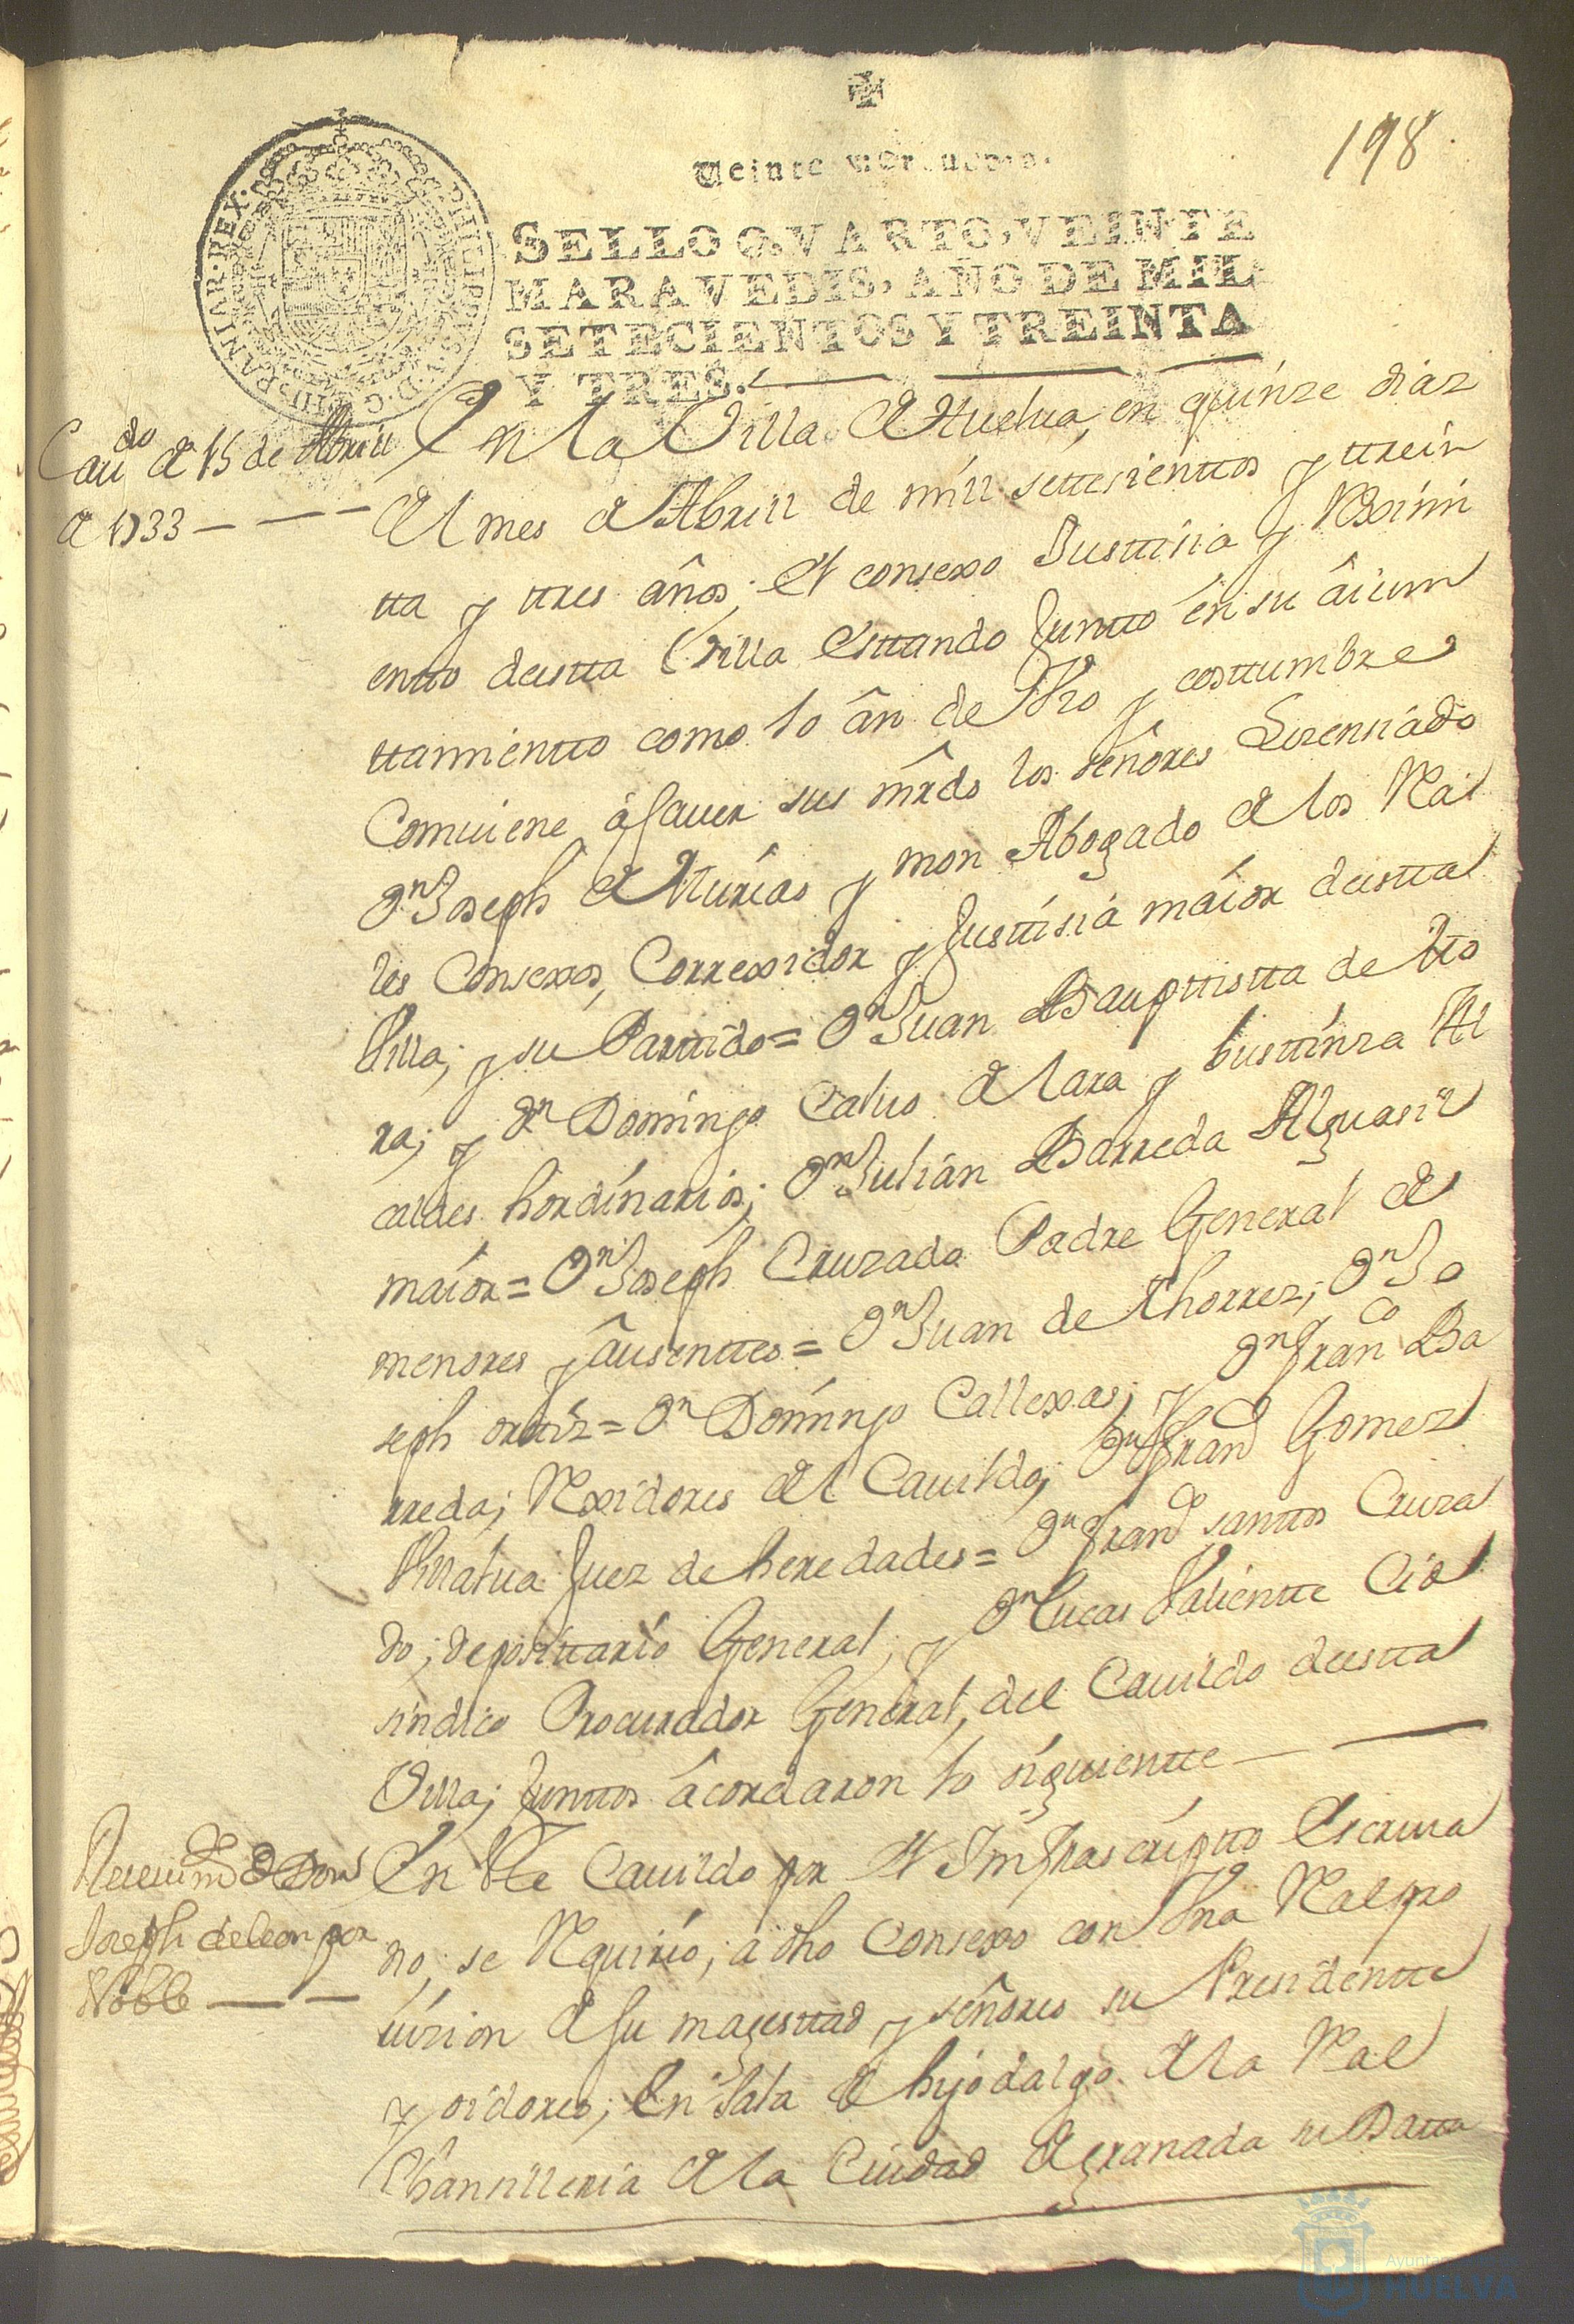 198
Veinte maravedis.
SELLO QVARTO, VEINTE
MARAVEDIS, AÑO DE MIL
SETECIENTOS Y TREINTA
Y TRES.
HISPANIAR·REX·
PHILIPPUS·V·D·G·
Caudo de 15 de Abrill
de 1733
En la Villa de Huelua, en quinze dias
del mes de Abrill de mill settesienttos y ttrein
tta y ttres años; el consexo Justtisia y Reximi
entto desta Villa esttando Juntto en su aium
ttamientto como lo an de Vso y costtumbre
Comuiene a sauer sus mrds los señores Lizensiado
Dn Joseph de Murias y mon Abogado de los Rea
les Consexos, Correxidor y Justtisia maior destta
Villa; y su Parttido = Dn Juan Baupttistta de
ra; y Dn Domingo Caluo de lara y busttinza Al
caldes hordinarios; Dn Julian Barreda Alguasil
maior = Dn Joseph Cruzado Padre General de
menores y ausenttes = Dn Juan de thorres; Dn Jo
seph orttiz = Dn Domingo Callexas; y Dn Franco Ba
rreda; Rexidores del Cauildo; Dn Franco Gomez
Juez de heredades = Dn Franco santtos Cruza
do; deposittario General; y Dn lucas Valientte
sindico Procurador General, del Cauildo destta
Villa; Junttos acordaron lo siguientte
Reseuimto de Don
Joseph de leon por
Noble
En este Cauildo por el Imfrascriptto escriua
no, se Requirio; a dho Consexo con Vna Real pro
uizion de su magesttad y señores su Presidentte
y oidores; en sala de hijodalgo de la Real
Chansilleria de la Ciudad de granada su Datta
Ayunt
HUELVA